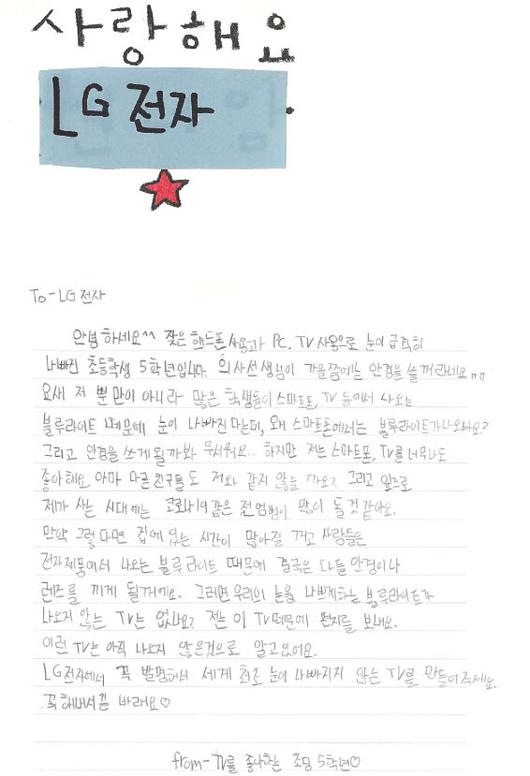 사랑해요
LG 전자
To - LG 전자
안녕하세요^^ 잦은 핸드폰 사용과 PC, TV 사용으로 눈이 급격히
나빠진 초등학생 5학년입니다. 의사선생님이 가을쯤에는 안경을 쓸꺼라네요 ㅠㅠ
요새 저 뿐만이 아니라 많은 학생들이 스마트폰, TV 등에서 나오는
블루라이트 때문에 눈이 나빠진다는데, 왜 스마트폰에서는 블루라이트가 나오나요?
그리고 안경을 쓰게 될까봐 무서워요.. 하지만 저는 스마트폰, TV를 너무나도
좋아해요. 아마 다른 친구들도 저와 같지 않을까요? 그리고 앞으로
제가 사는 시대에는 코로나19 같은 전염병이 많이 돌 것 같아요.
만약 그렇다면 집에 있는 시간이 많아질 꺼고 사람들은
전자제품에서 나오는 블루라이트 때문에 결국은 다들 안경이나
렌즈를 끼게 될거에요. 그러면 우리의 눈을 나쁘게하는 블루라이트가
나오지 않는 TV는 없나요? 저는 이 TV때문에 편지를 보내요.
이런 TV는 아직 나오지 않은것으로 알고있어요.
LG전자에서 꼭 발명해서 세계 최초 눈이 나빠지지 않는 TV를 만들어주세요.
꼭 해내시길 바래요♡
from - TV를 좋아하는 초딩 5학년♡